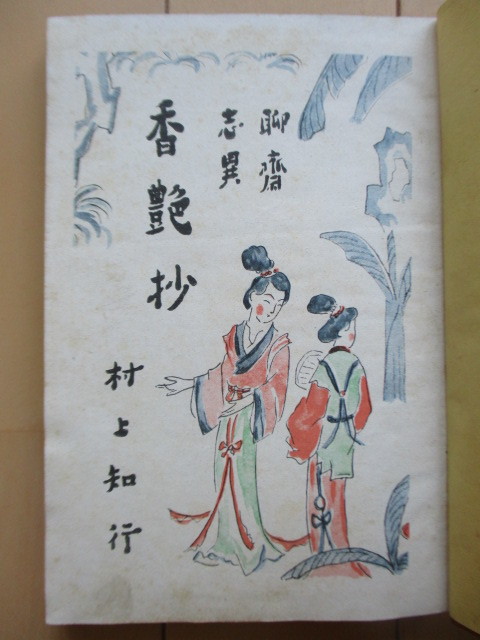 聊齋
志異
香艶抄
村上知行